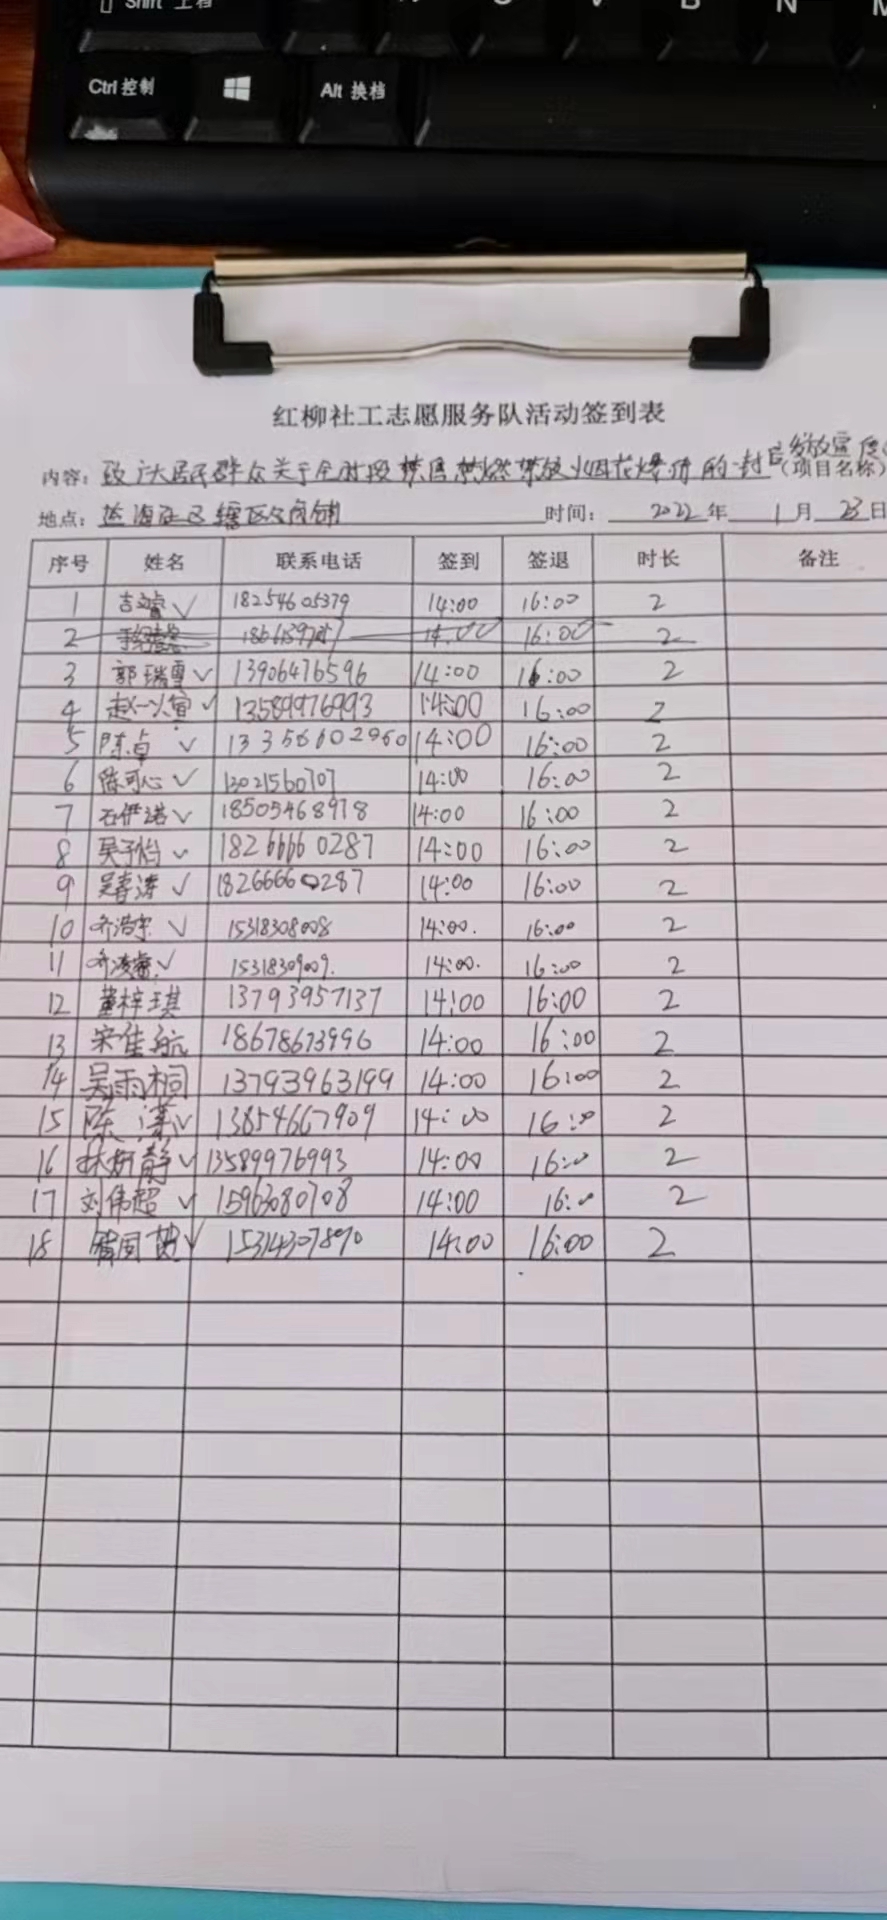 Shift 上档
B
N
Ctrl 控制
Alt 换档
红柳社工志愿服务队活动签到表
内容: 致广大居民群众关于全时段禁售禁燃禁放烟花爆竹的一封信发放宣传 (项目名称)
地点: 社区辖区及商铺 时间: 2022年 1月 23日
序号 姓名 联系电话 签到 签退 时长 备注
1 吉 ✓ 18254605379 14:00 16:00 2
2 14:00 16:00 2
3 郭瑞雪 ✓ 13906476596 14:00 16:00 2
4 赵一寅 ✓ 13589976993 14:00 16:00 2
5 陈卓 ✓ 13356602960 14:00 16:00 2
6 陈可心 ✓ 13021560707 14:00 16:00 2
7 石伊诺 ✓ 18505468978 14:00 16:00 2
8 吴子怡 ✓ 18266660287 14:00 16:00 2
9 吴春涛 ✓ 18266660287 14:00 16:00 2
10 齐浩宇 ✓ 15318308008 14:00. 16:00 2
11 齐凌 ✓ 15318309009. 14:00. 16:00 2
12 董梓琪 13793957137 14:00 16:00 2
13 宋佳航 18678673996 14:00 16:00 2
14 吴雨桐 13793963199 14:00 16:00 2
15 陈潇 ✓ 13854667909 14:00 16:00 2
16 林妍静 ✓ 13589976993 14:00 16:00 2
17 刘伟超 ✓ 15963080708 14:00 16:00 2
18 韩国 ✓ 15314307890 14:00 16:00 2